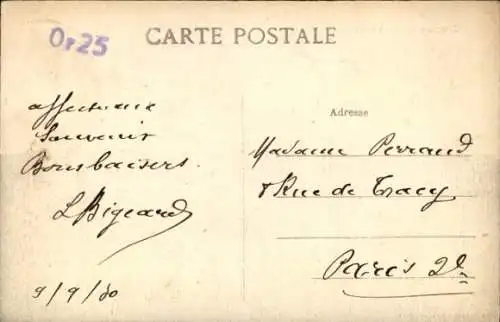 Or25
CARTE POSTALE
affectueux
Souvenir
Bons baisers.
L Bigeard
9/9/30
Adresse
Madame Perraud
8 Rue de Tracy
Paris 2e